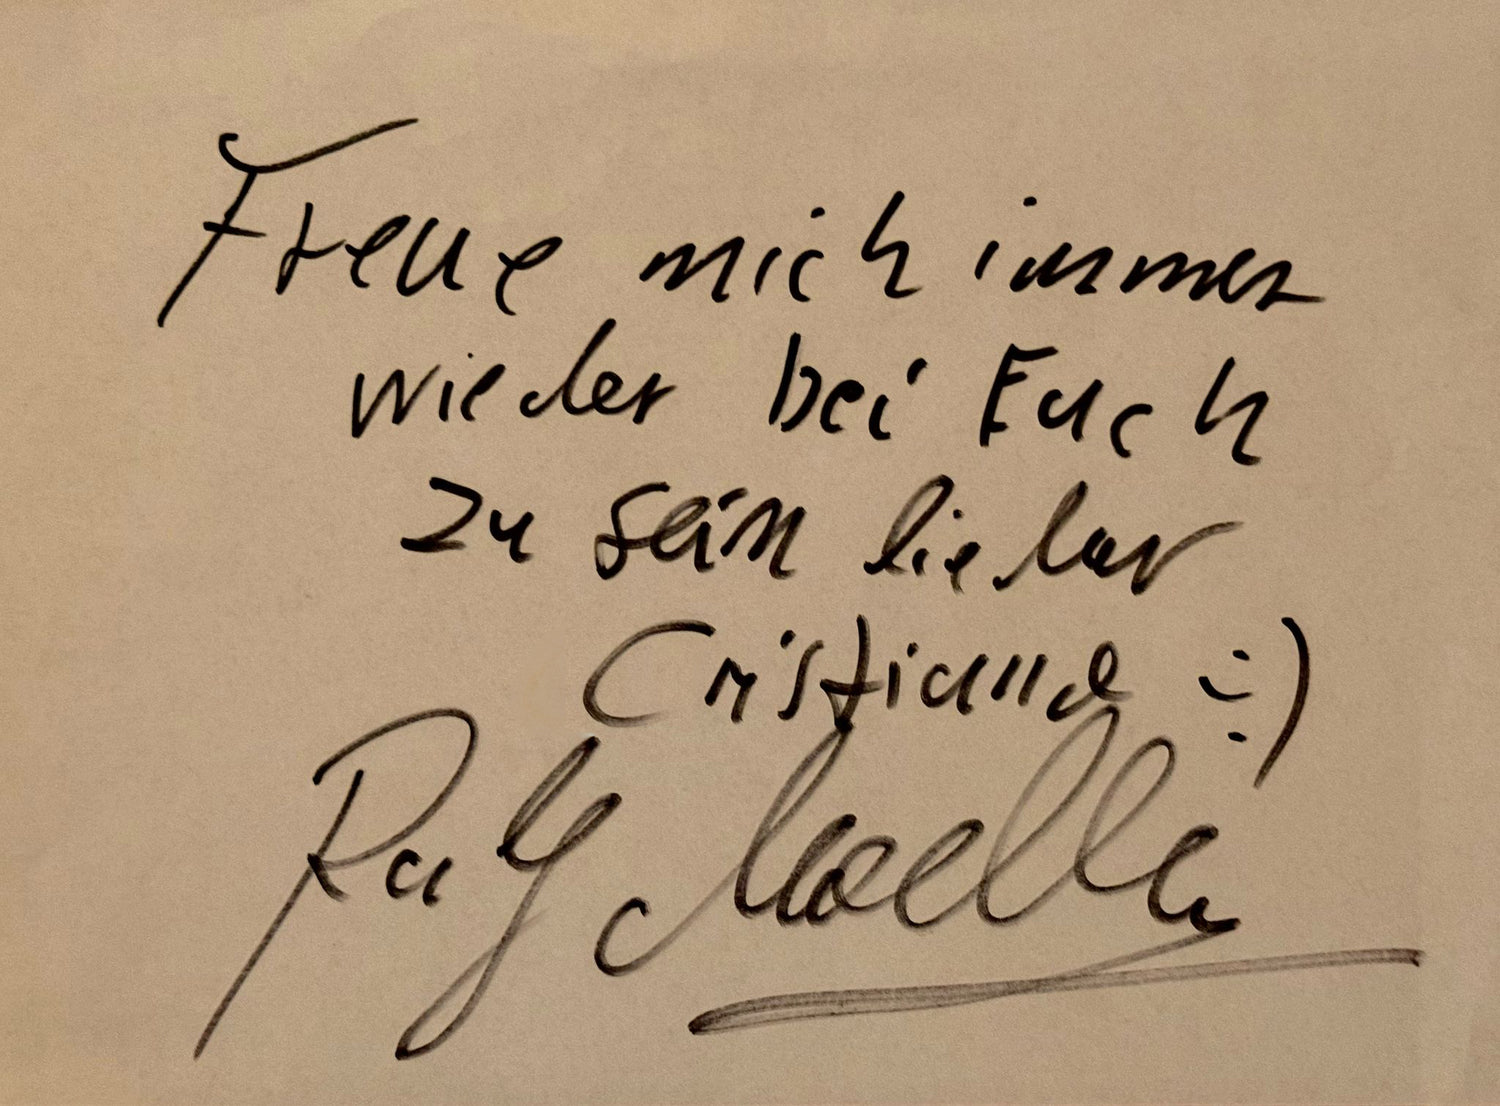 Freue mich immer
wieder bei Euch
zu sein lieber
Cristiano :-)
Ralf Moeller